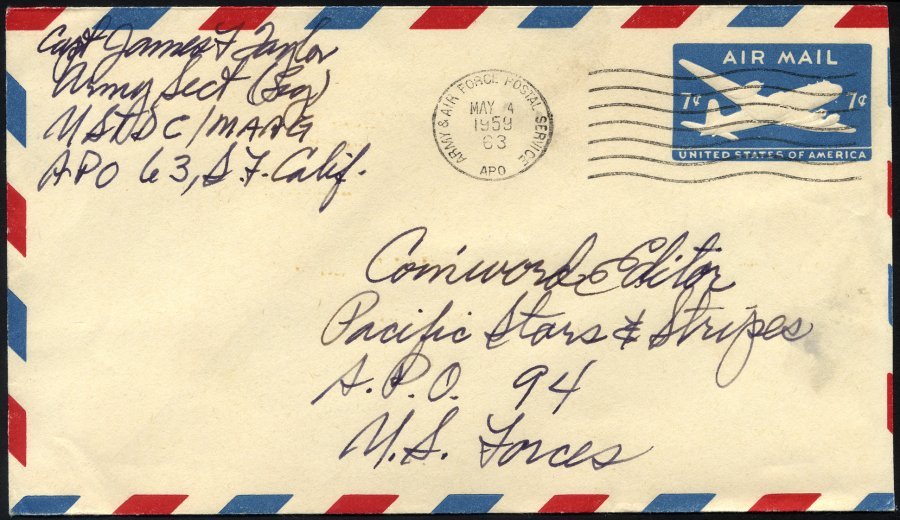 Capt James F Taylor
Army Sect (Log)
USTDC/MAAG
APO 63, S.F. Calif.
ARMY & AIR FORCE POSTAL SERVICE
MAY 4
1959
63
APO
AIR MAIL
7¢ 7¢
UNITED STATES OF AMERICA
Coinword Editor
Pacific Stars & Stripes
A.P.O. 94
U.S. Forces